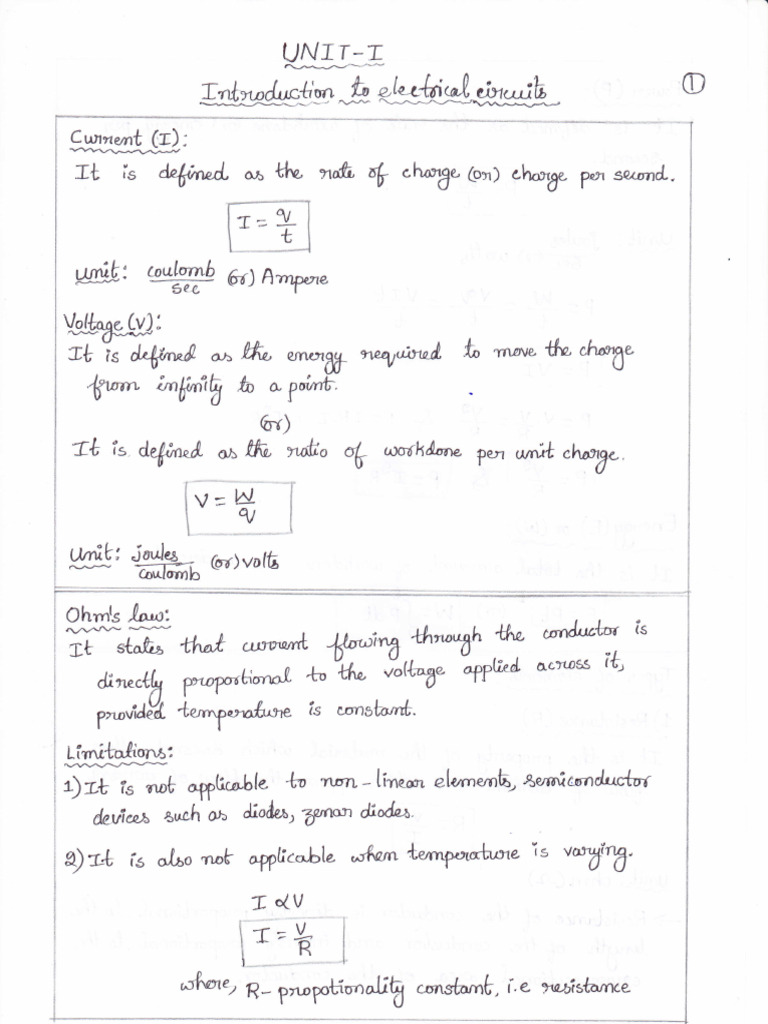 UNIT-I
Introduction to electrical circuits
1
Current (I):
It is defined as the rate of charge (or) charge per second.
I = q/t
unit: coulomb/sec (or) Ampere
Voltage (V):
It is defined as the energy required to move the charge
from infinity to a point.
(or)
It is defined as the ratio of workdone per unit charge.
V = W/q
Unit: joules/coulomb (or) volts
Ohm's law:
It states that current flowing through the conductor is
directly proportional to the voltage applied across it,
provided temperature is constant.
Limitations:
1) It is not applicable to non-linear elements, semiconductor
devices such as diodes, zenar diodes.
2) It is also not applicable when temperature is varying.
I ∝ V
I = V/R
where, R - propotionality constant, i.e resistance